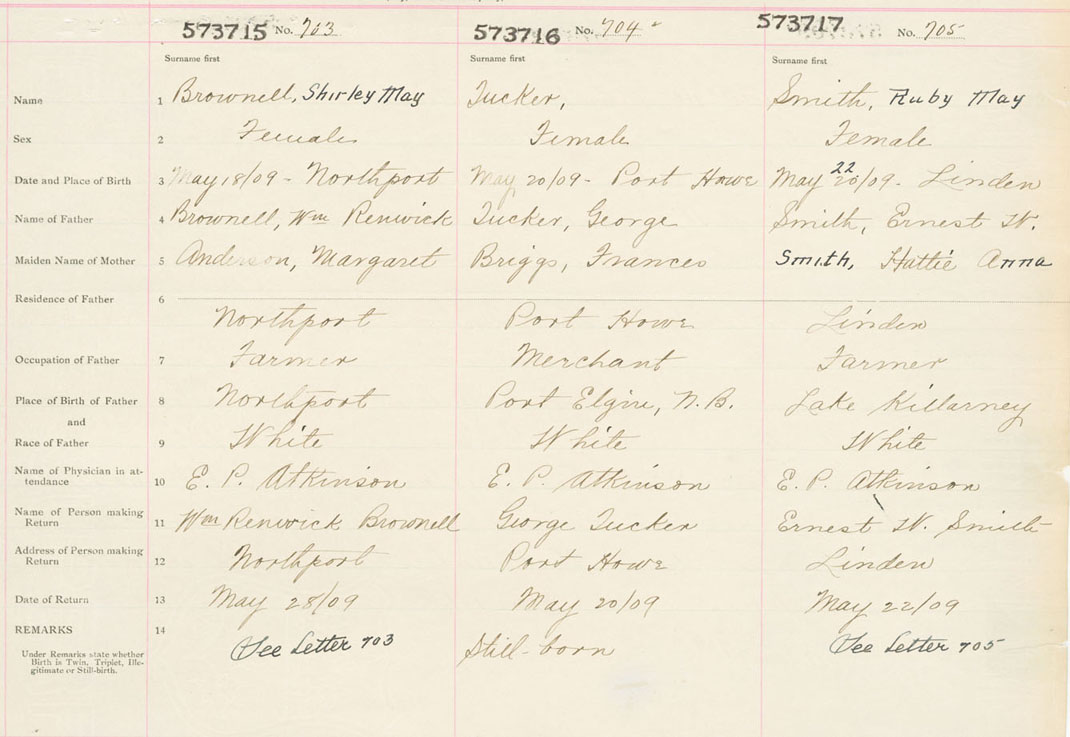 573715 No. 703 573716 No. 704 573717 No. 705
Surname first Surname first Surname first
Name 1 Brownell, Shirley May Tucker, Smith, Ruby May
Sex 2 Female Female Female
Date and Place of Birth 3 May 18/09 - Northport May, 20/09 - Port Howe May 22 20/09 - Linden
Name of Father 4 Brownell, Wm Renwick Tucker, George Smith, Ernest W.
Maiden Name of Mother 5 Anderson, Margaret Briggs, Frances Smith, Hattie Anna
Residence of Father 6
Northport Port Howe Linden
Occupation of Father 7 Farmer Merchant Farmer
Place of Birth of Father 8 Northport Port Elgin, N.B. Lake Killarney
and
Race of Father 9 White White White
Name of Physician in at-
tendance 10 E. P. Atkinson E. P. Atkinson E. P. Atkinson
Name of Person making
Return 11 Wm Renwick Brownell George Tucker Ernest W. Smith
Address of Person making
Return 12 Northport Port Howe Linden
Date of Return 13 May 28/09 May 20/09 May 22/09
REMARKS 14
See Letter 703 Still-born See Letter 705
Under Remarks state whether
Birth is Twin, Triplet, Ille-
gitimate or Still-birth.